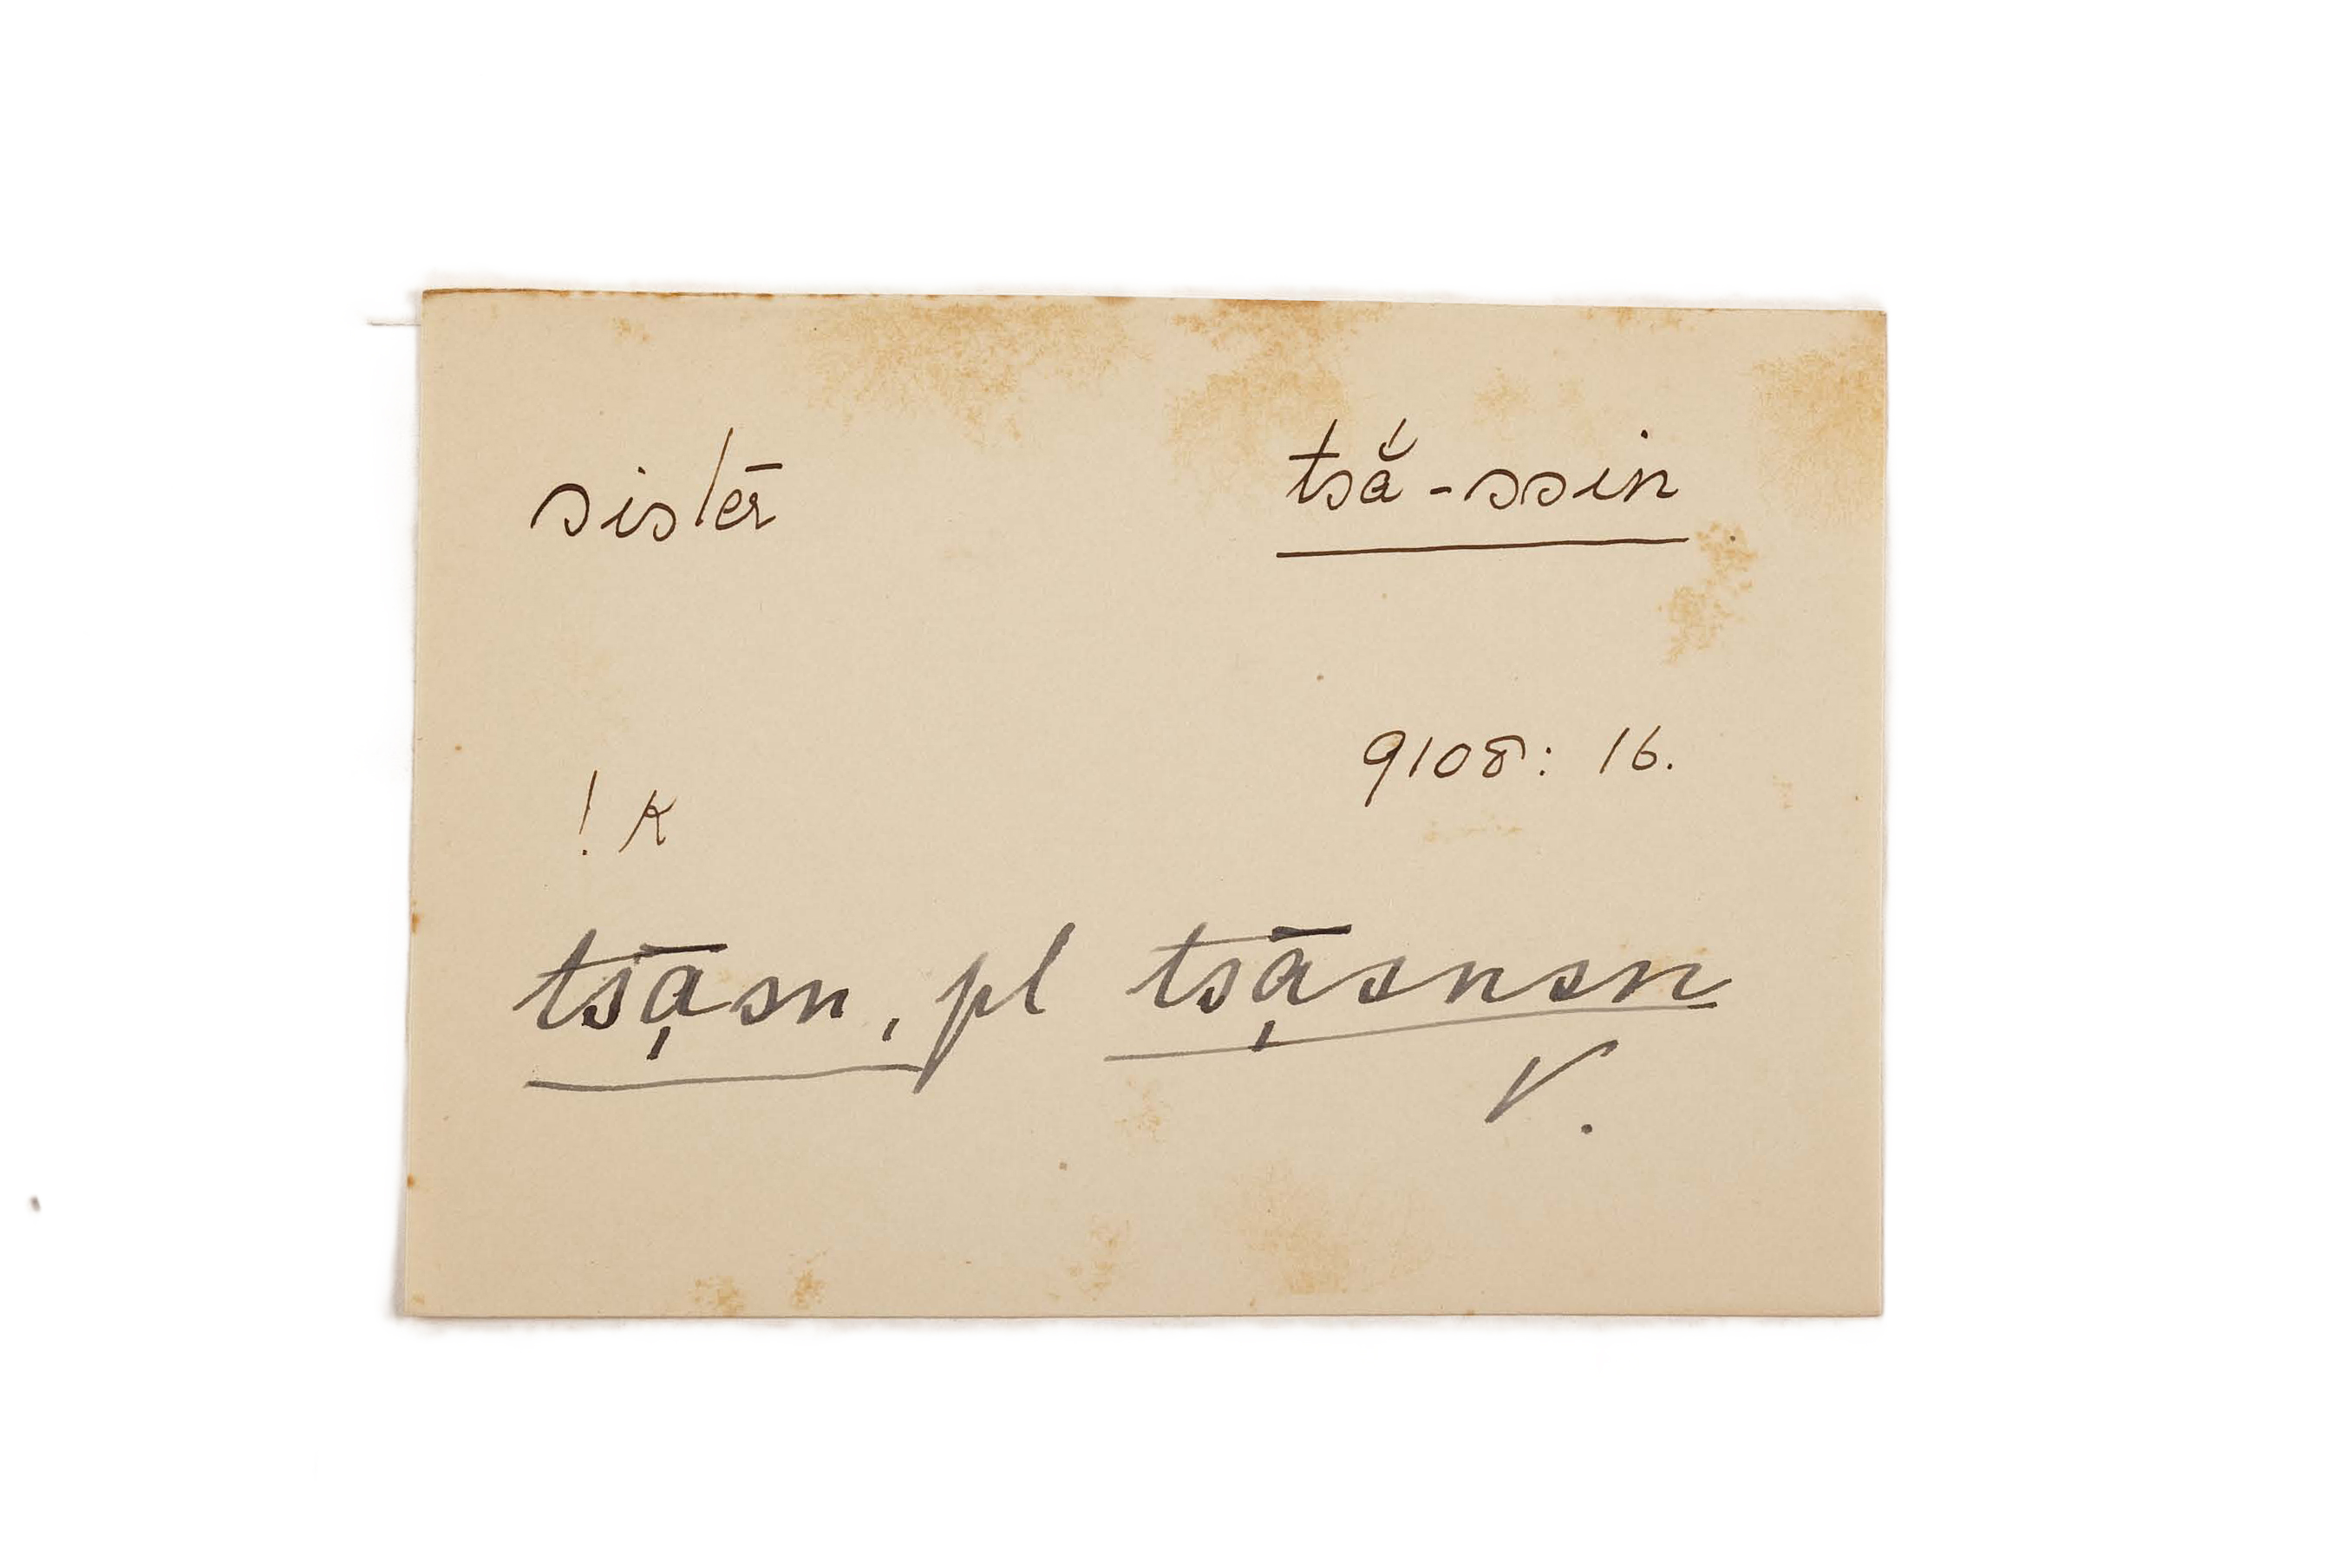 sister tsắ-ssin
9108: 16.
! K
tsā̦sn, pl tsā̦snsn
V.